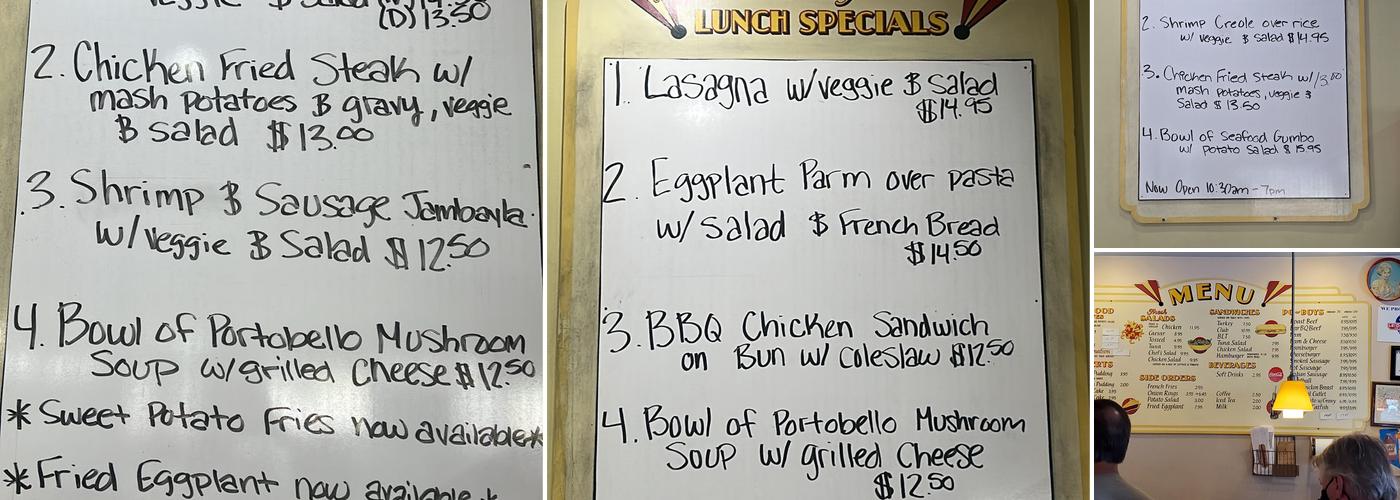 veggie & Salad
(D) 13.50
2. Chicken Fried Steak w/
mash potatoes & gravy, veggie
& salad $13.00
3. Shrimp & Sausage Jambayla
w/veggie & Salad $12.50
4. Bowl of Portobello Mushroom
Soup w/grilled Cheese $12.50
* Sweet Potato Fries now available*
* Fried Eggplant now available *
LUNCH SPECIALS
1. Lasagna w/veggie & Salad
$14.95
2. Eggplant Parm over pasta
w/ salad & French Bread
$14.50
3. BBQ Chicken Sandwich
on Bun w/ coleslaw $12.50
4. Bowl of Portobello Mushroom
Soup w/ grilled Cheese
$12.50
2. Shrimp Creole over rice
w/ veggie & Salad $14.95
3. Chicken Fried Steak w/
mash potatoes, veggie &
Salad $13.50
4. Bowl of Seafood Gumbo
w/ Potato Salad $15.95
Now Open 10:30am - 7pm
MENU
Fresh
SALADS
Chicken
Caesar
Tossed
Tuna
Chef's Salad
Chicken Salad
SIDE ORDERS
French Fries
Onion Rings
Potato Salad
Fried Eggplant
SANDWICHES
Turkey
Club
BLT
Tuna Salad
Chicken Salad
Hamburger
BEVERAGES
Soft Drinks
Coffee
Iced Tea
Milk
PO-BOYS
Roast Beef
Bar BQ Beef
Ham
Ham & Cheese
Hamburger
Cheeseburger
Smoked Sausage
Hot Sausage
Italian Sausage